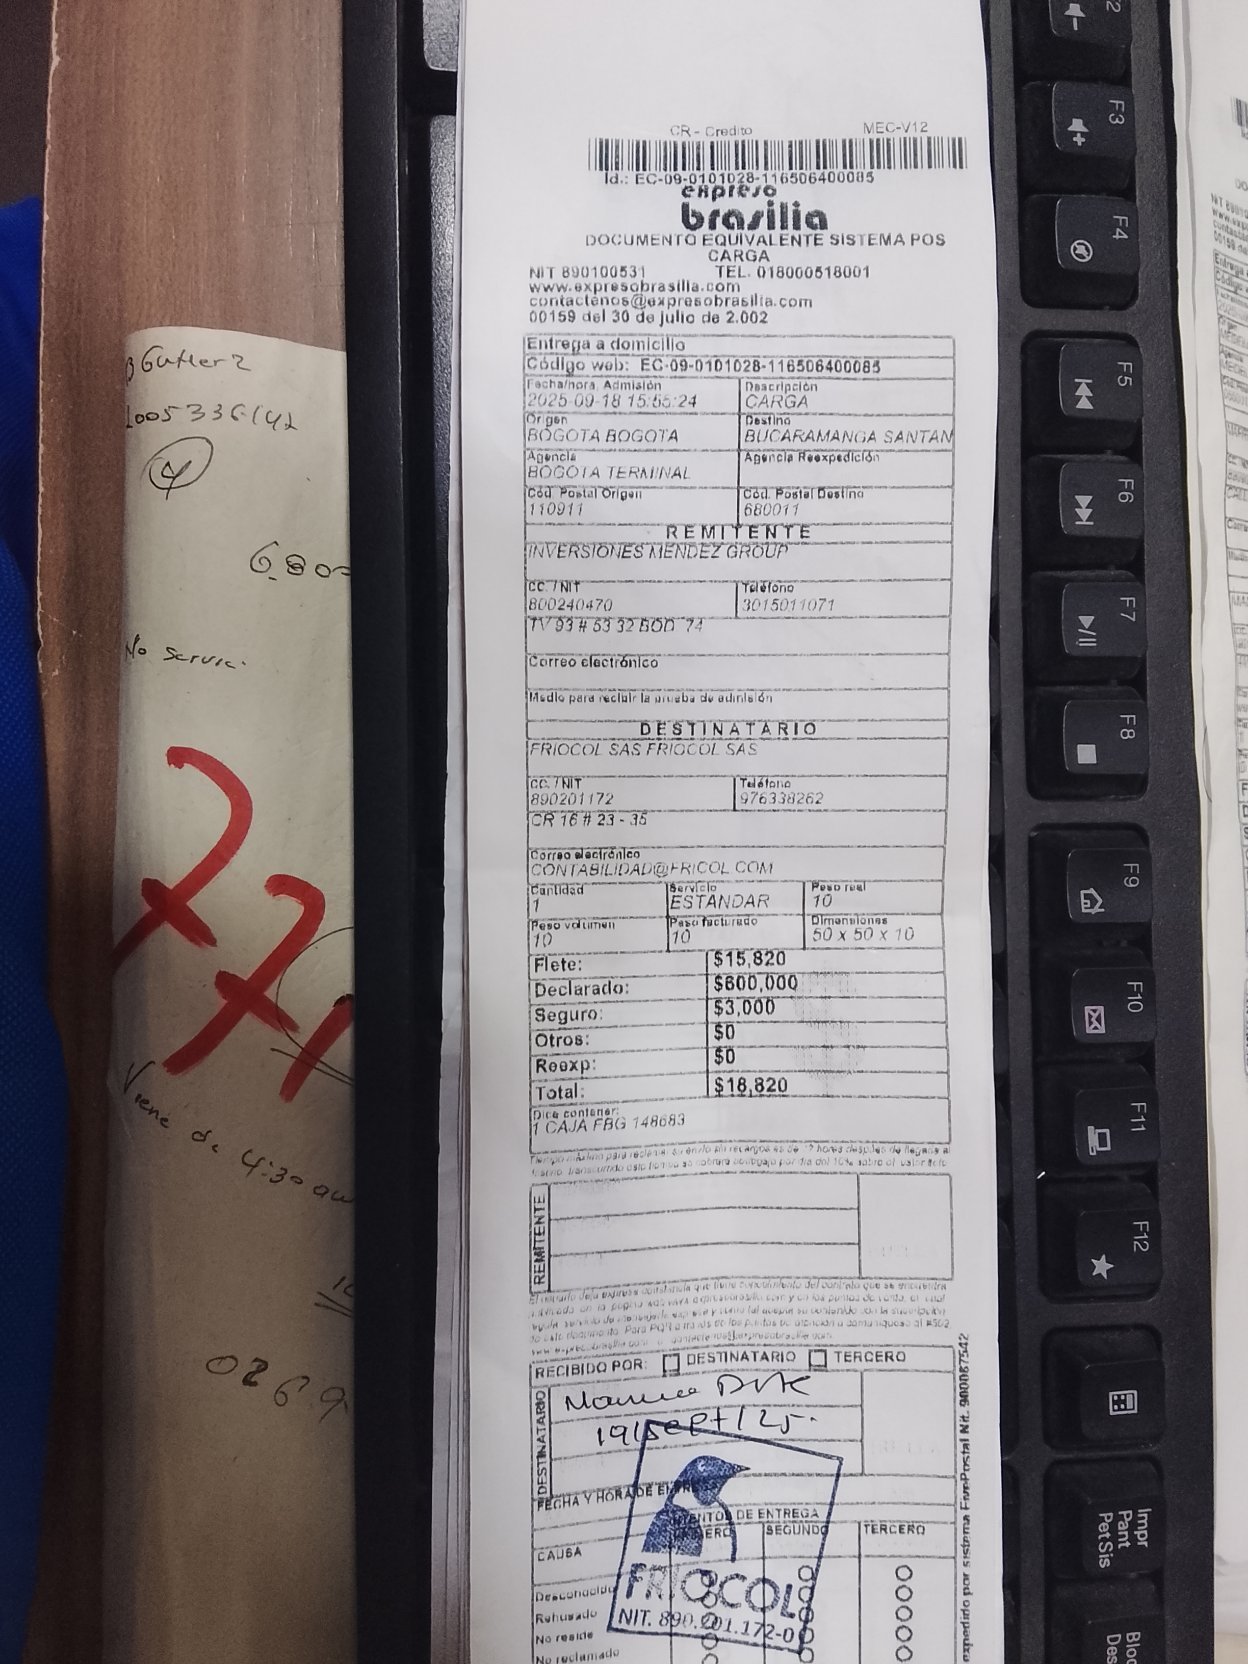 CR - Credito MEC-V12
Id.: EC-09-0101028-116506400085
expreso
brasilia
DOCUMENTO EQUIVALENTE SISTEMA POS
CARGA
NIT 890100531 TEL. 018000518001
www.expresobrasilia.com
contactenos@expresobrasilia.com
00159 del 30 de julio de 2.002
Entrega a domicilio
Código web: EC-09-0101028-116506400085
Fecha/hora, Admisión Descripción
2025-09-18 15:55:24 CARGA
Origen Destino
BOGOTA BOGOTA BUCARAMANGA SANTAN
Agencia Agencia Reexpedición
BOGOTA TERMINAL
Cód. Postal Origen Cód. Postal Destino
110911 680011
REMITENTE
INVERSIONES MENDEZ GROUP
CC. / NIT Teléfono
800240470 3015011071
TV 93 # 53 32 BOD 74
Correo electrónico
Medio para recibir la prueba de admisión
DESTINATARIO
FRIOCOL SAS FRIOCOL SAS
CC. / NIT Teléfono
890201172 976338262
CR 16 # 23 - 35
Correo electrónico
CONTABILIDAD@FRICOL.COM
Cantidad Servicio Peso real
1 ESTANDAR 10
Peso volumen Peso facturado Dimensiones
10 10 50 x 50 x 10
Flete: $15,820
Declarado: $600,000
Seguro: $3,000
Otros: $0
Reexp: $0
Total: $18,820
Dice contener:
1 CAJA FBG 148683
REMITENTE
RECIBIDO POR: DESTINATARIO TERCERO
DESTINATARIO
19/sept/25.
FECHA Y HORA DE
DE ENTREGA
SEGUNDO TERCERO
CAUSA
Desconocido
Rehusado
No reside
No reclamado
FRIOCOL
NIT. 890.201.172-0
expedido por sistema FivePostal Nit. 900087542
Viene de 4:30 am
F3
F4
F5
F6
F7
F8
F9
F10
F11
F12
Impr
Pant
PetSis